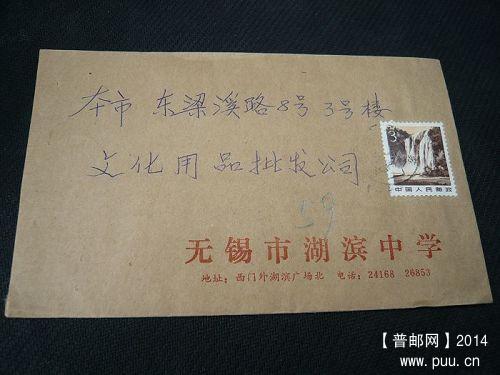 本市 东梁溪路8号 3号楼
文化用品批发公司
3
中国人民邮政
59
无锡市湖滨中学
地址：西门外湖滨广场北 电话：24168 26853
【普邮网】2014
www.puu.cn